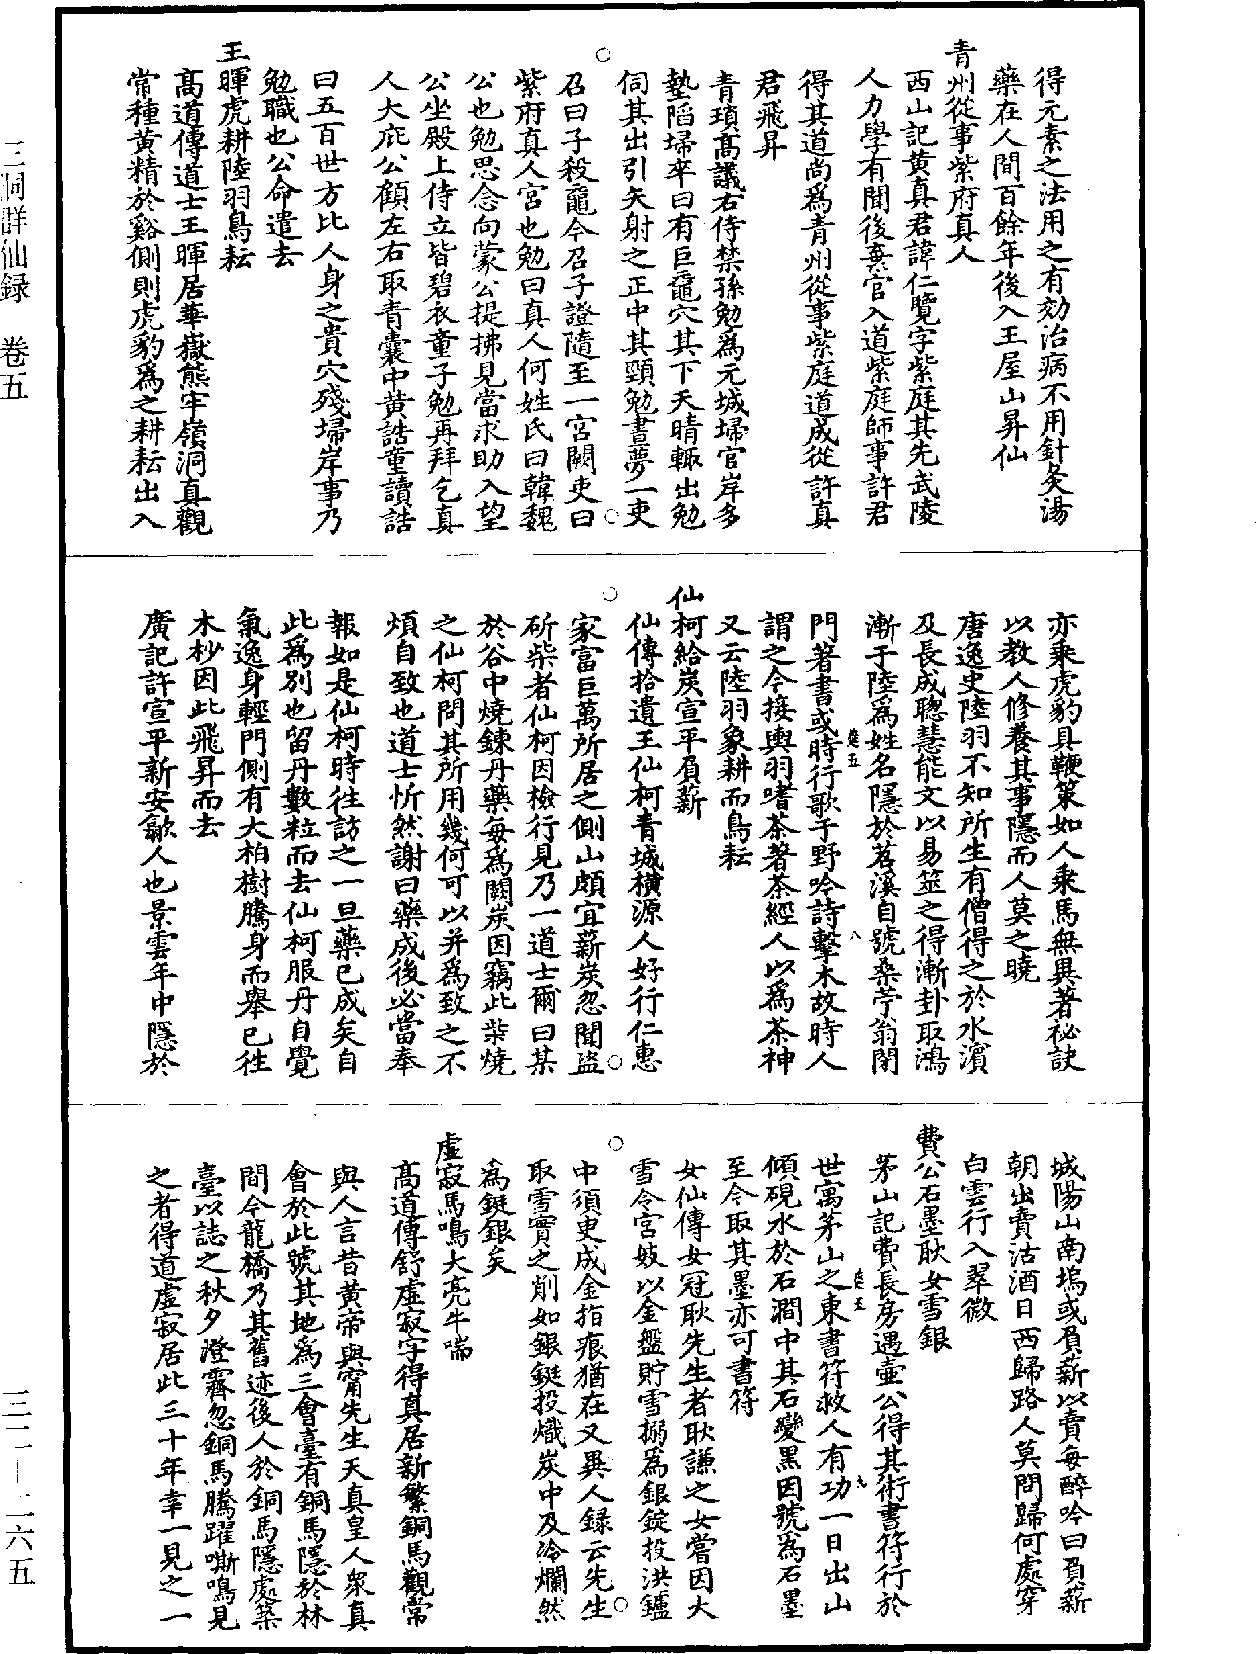 得元素之法用之有効治病不用針灸湯
藥在人間百餘年後入王屋山昇仙
青州從事紫府真人
西山記黄真君諱仁覽字紫庭其先武陵
人力學有聞後棄官入道紫庭師事許君
得其道尚爲青州從事紫庭道成從許真
君飛昇
青瑣髙議右侍禁孫勉爲元城埽官岸多
墊陷埽卒曰有巨黿穴其下天晴輙出勉
伺其出引矢射之正中其頸勉晝夢一吏
召曰子殺黿今召子證隨至一宮闕吏曰
紫府真人宮也勉曰真人何姓氏曰韓魏
公也勉思念向蒙公提拂見當求助入望
公坐殿上侍立皆碧衣童子勉再拜乞真
人大庇公顧左右取青囊中黄誥童讀誥
曰五百世方比人身之貴穴殘埽岸事乃
勉職也公命遣去
王暉虎耕陸羽鳥耘
髙道傳道士王暉居華嶽熊牢嶺洞真觀
常種黄精於谿側則虎豹爲之耕耘出入
亦乘虎豹具鞭策如人乘馬無異著祕訣
以教人修養其事隱而人莫之曉
唐逸史陸羽不知所生有僧得之於水濱
及長成聰慧能文以易筮之得漸卦取鴻
漸于陸爲姓名隱於苕溪自號桑苧翁閉
門著書或時行歌于野吟詩擊木故時人
謂之今接輿羽嗜茶著茶經人以爲茶神
又云陸羽象耕而鳥耘
仙柯給炭宣平負薪
仙傳拾遺王仙柯青城橫源人好行仁惠
家富巨萬所居之側山頗宜薪炭忽聞盜
斫柴者仙柯因檢行見乃一道士爾曰某
於谷中燒鍊丹藥每爲闕炭因竊此柴燒
之仙柯問其所用幾何可以并爲致之不
煩自致也道士忻然謝曰藥成後必當奉
報如是仙柯時往訪之一旦藥已成矣自
此爲別也留丹數粒而去仙柯服丹自覺
氣逸身輕門側有大柏樹騰身而舉已往
木杪因此飛昇而去
廣記許宣平新安歙人也景雲年中隱於
城陽山南塢或負薪以賣每醉吟曰負薪
朝出賣沽酒日西歸路人莫問歸何處穿
白雲行入翠微
費公石墨耿女雪銀
茅山記費長房遇壷公得其術書符行於
世寓茅山之東書符救人有功一日出山
傾硯水於石澗中其石變黑因號爲石墨
至今取其墨亦可書符
女仙傳女冠耿先生者耿謙之女嘗因大
雪令宮妓以金盤貯雪搦爲銀錠投洪鑪
中須吏成金指痕猶在又異人録云先生
取雪實之削如銀鋌投熾炭中及冷爛然
爲鋌銀矣
虛寂馬鳴大亮牛喘
髙道傳舒虛寂字得真居新繁銅馬觀常
與人言昔黄帝與甯先生天真皇人衆真
會於此號其地爲三會臺有銅馬隱於林
間今龍橋乃其舊迹後人於銅馬隱處築
臺以誌之秋夕澄霽忽銅馬騰躍嘶鳴見
之者得道虛寂居此三十年幸一見之一
三洞群仙録 卷五
三二—二六五